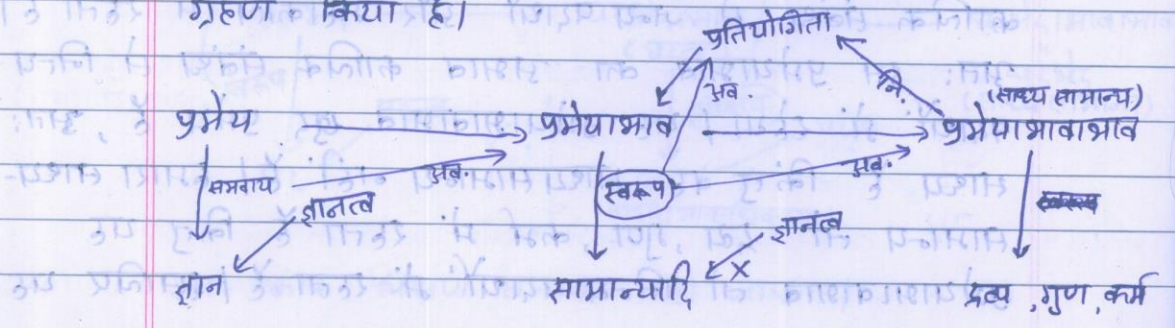 ग्रहण किया है।
प्रतियोगिता
अव. नि.
(साध्य सामान्य)
प्रमेय प्रमेयाभाव प्रमेयाभावाभाव
समवाय अव. स्वरूप अव.
ज्ञानत्व ज्ञानत्व
ज्ञान सामान्यादि X द्रव्य, गुण, कर्म